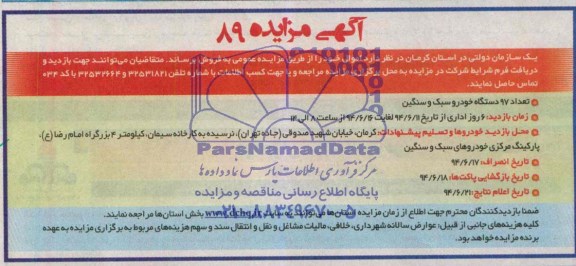 آگهی مزایده ۸۹
یک سازمان دولتی در استان کرمان در نظر دارد خودروهای خود را از طریق مزایده عمومی به فروش برساند. متقاضیان می‌توانند جهت بازدید و
دریافت فرم شرایط شرکت در مزایده به محل برگزاری مزایده مراجعه و یا جهت کسب اطلاعات با شماره تلفن ۳۲۵۳۱۸۲۱ و ۳۲۵۳۲۶۶۴ با کد ۰۳۴
تماس حاصل نمایند.
تعداد ۹۷ دستگاه خودرو سبک و سنگین
زمان بازدید: ۶ روز اداری از تاریخ ۹۴/۶/۱۱ لغایت ۹۴/۶/۱۶ از ساعت ۸ الی ۱۴
محل بازدید خودروها و تسلیم پیشنهادات: کرمان، خیابان شهید صدوقی (جاده تهران)، نرسیده به کارخانه سیمان، کیلومتر ۴ بزرگراه امام رضا (ع)،
پارکینگ مرکزی خودروهای سبک و سنگین
ParsNamadData
تاریخ انصراف: ۹۴/۶/۱۷
مرکز فرآوری اطلاعات پارس نماد داده ها
تاریخ بازگشایی پاکت‌ها: ۹۴/۶/۱۸
پایگاه اطلاع رسانی مناقصه و مزایده
تاریخ اعلام نتایج: ۹۴/۶/۲۱
ضمنا بازدیدکنندگان محترم جهت اطلاع از زمان مزایده استان‌ها می‌توانند به سایت www.dchq.ir بخش استان‌ها مراجعه نمایند.
۰۲۱-۸۸۳۴۹۶۷۰
کلیه هزینه‌های جانبی از قبیل: عوارض سالانه شهرداری، خلافی، مالیات مشاغل و نقل و انتقال سند و سهم هزینه‌های مربوط به برگزاری مزایده به عهده
برنده مزایده خواهد بود.